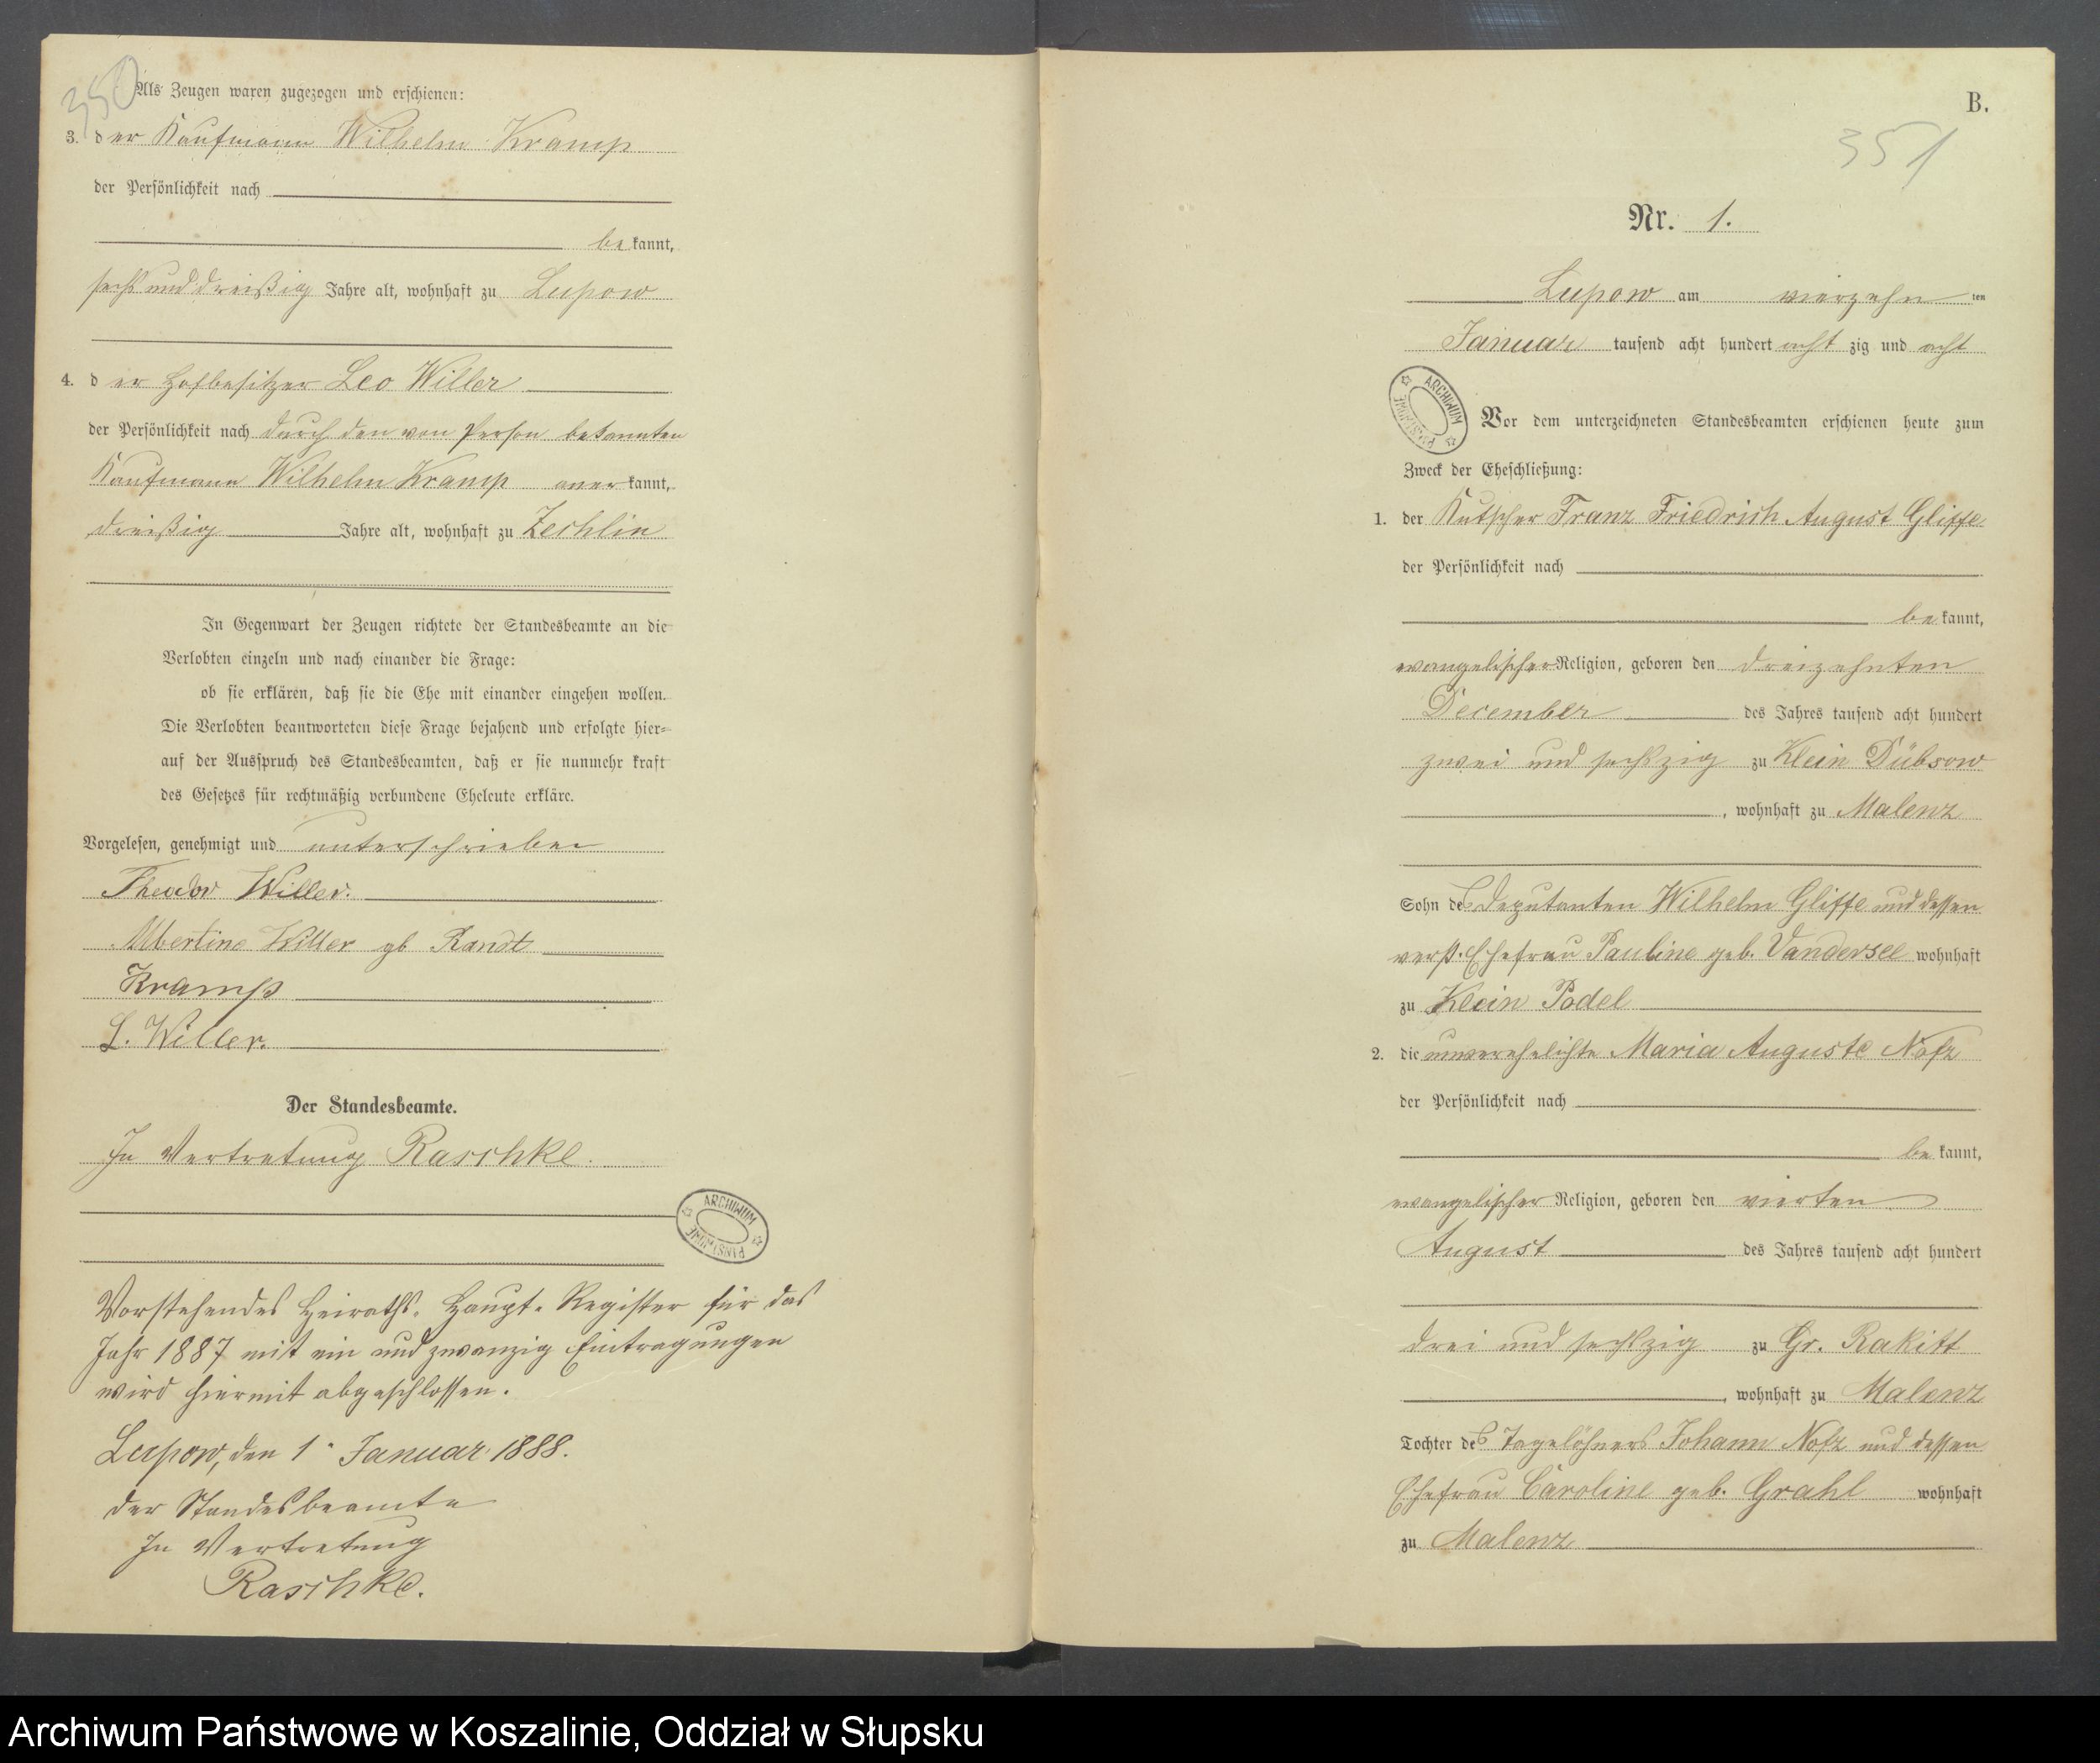 350
Als Zeugen waren zugezogen und erschienen:
3. der Kaufmann Wilhelm Kramp
der Persönlichkeit nach
bekannt,
sechs und dreißig Jahre alt, wohnhaft zu Lupow
4. der Hofbesitzer Leo Willer
der Persönlichkeit nach durch den von Person bekannten
Kaufmann Wilhelm Kramp anerkannt,
dreißig Jahre alt, wohnhaft zu Zechlin
In Gegenwart der Zeugen richtete der Standesbeamte an die
Verlobten einzeln und nach einander die Frage:
ob sie erklären, daß sie die Ehe mit einander eingehen wollen.
Die Verlobten beantworteten diese Frage bejahend und erfolgte hier-
auf der Ausspruch des Standesbeamten, daß er sie nunmehr kraft
des Gesetzes für rechtmäßig verbundene Eheleute erkläre.
Vorgelesen, genehmigt und unterschrieben
Theodor Willer.
Albertine Willer gb Randt
Kramp
L. Willer.
Der Standesbeamte.
In Vertretung Raschke.
ARCHIWUM PAŃSTWOWE
Vorstehendes Heiraths-Haupt-Register für das
Jahr 1887 mit ein und zwanzig Eintragungen
wird hiermit abgeschlossen.
Lupow, den 1. Januar 1888.
Der Standesbeamte
In Vertretung
Raschke.
B.
351
Nr. 1.
Lupow am vierzehnten
Januar tausend acht hundert achtzig und acht
ARCHIWUM PAŃSTWOWE
Vor dem unterzeichneten Standesbeamten erschienen heute zum
Zweck der Eheschließung:
1. der Kutscher Franz Friedrich August Gliffe
der Persönlichkeit nach
bekannt,
evangelischer Religion, geboren den dreizehnten
December des Jahres tausend acht hundert
zwei und sechszig zu Klein Dübsow
, wohnhaft zu Malenz
Sohn des Deputanten Wilhelm Gliffe und dessen
verst. Ehefrau Pauline geb. Vandersee wohnhaft
zu Klein Podel
2. die unverehelichte Maria Auguste Nofz
der Persönlichkeit nach
bekannt,
evangelischer Religion, geboren den vierten
August des Jahres tausend acht hundert
drei und sechszig zu Gr. Rakitt
, wohnhaft zu Malenz
Tochter des Tagelöhners Johann Nofz und dessen
Ehefrau Caroline geb. Grahl wohnhaft
zu Malenz
Archiwum Państwowe w Koszalinie, Oddział w Słupsku